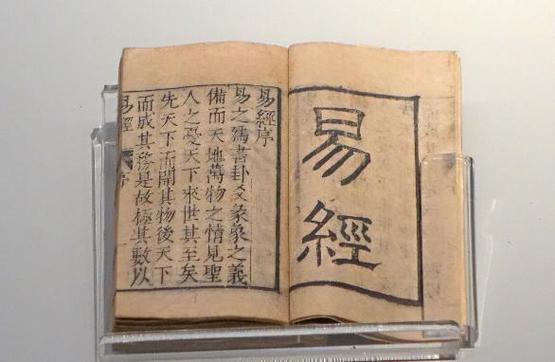 易經
易經序
易之為書卦爻彖象之義
備而天地萬物之情見聖
人之憂天下來世其至矣
先天下而開其物後天下
而成其務是故極其數以
易經
序